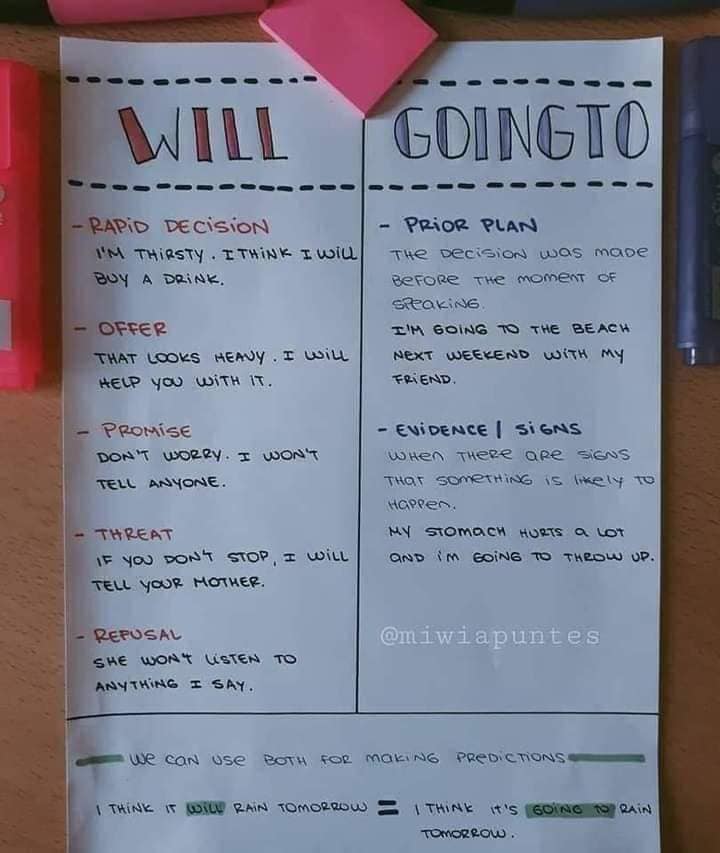 WILL
- RAPID DECISION
I'M THIRSTY. I THINK I WILL
BUY A DRINK.
- OFFER
THAT LOOKS HEAVY. I WILL
HELP YOU WITH IT.
- PROMISE
DON'T WORRY. I WON'T
TELL ANYONE.
- THREAT
IF YOU DON'T STOP, I WILL
TELL YOUR MOTHER.
- REFUSAL
SHE WON'T LISTEN TO
ANYTHING I SAY.
GOING TO
- PRIOR PLAN
THE DECISION WAS MADE
BEFORE THE MOMENT OF
SPEAKING.
I'M GOING TO THE BEACH
NEXT WEEKEND WITH MY
FRIEND.
- EVIDENCE / SIGNS
WHEN THERE ARE SIGNS
THAT SOMETHING IS likely TO
HAPPEN.
MY STOMACH HURTS A LOT
AND I'M GOING TO THROW UP.
@miwiapuntes
WE CAN USE BOTH FOR MAKING PREDICTIONS
I THINK IT WILL RAIN TOMORROW = I THINK IT'S GOING TO RAIN
TOMORROW.